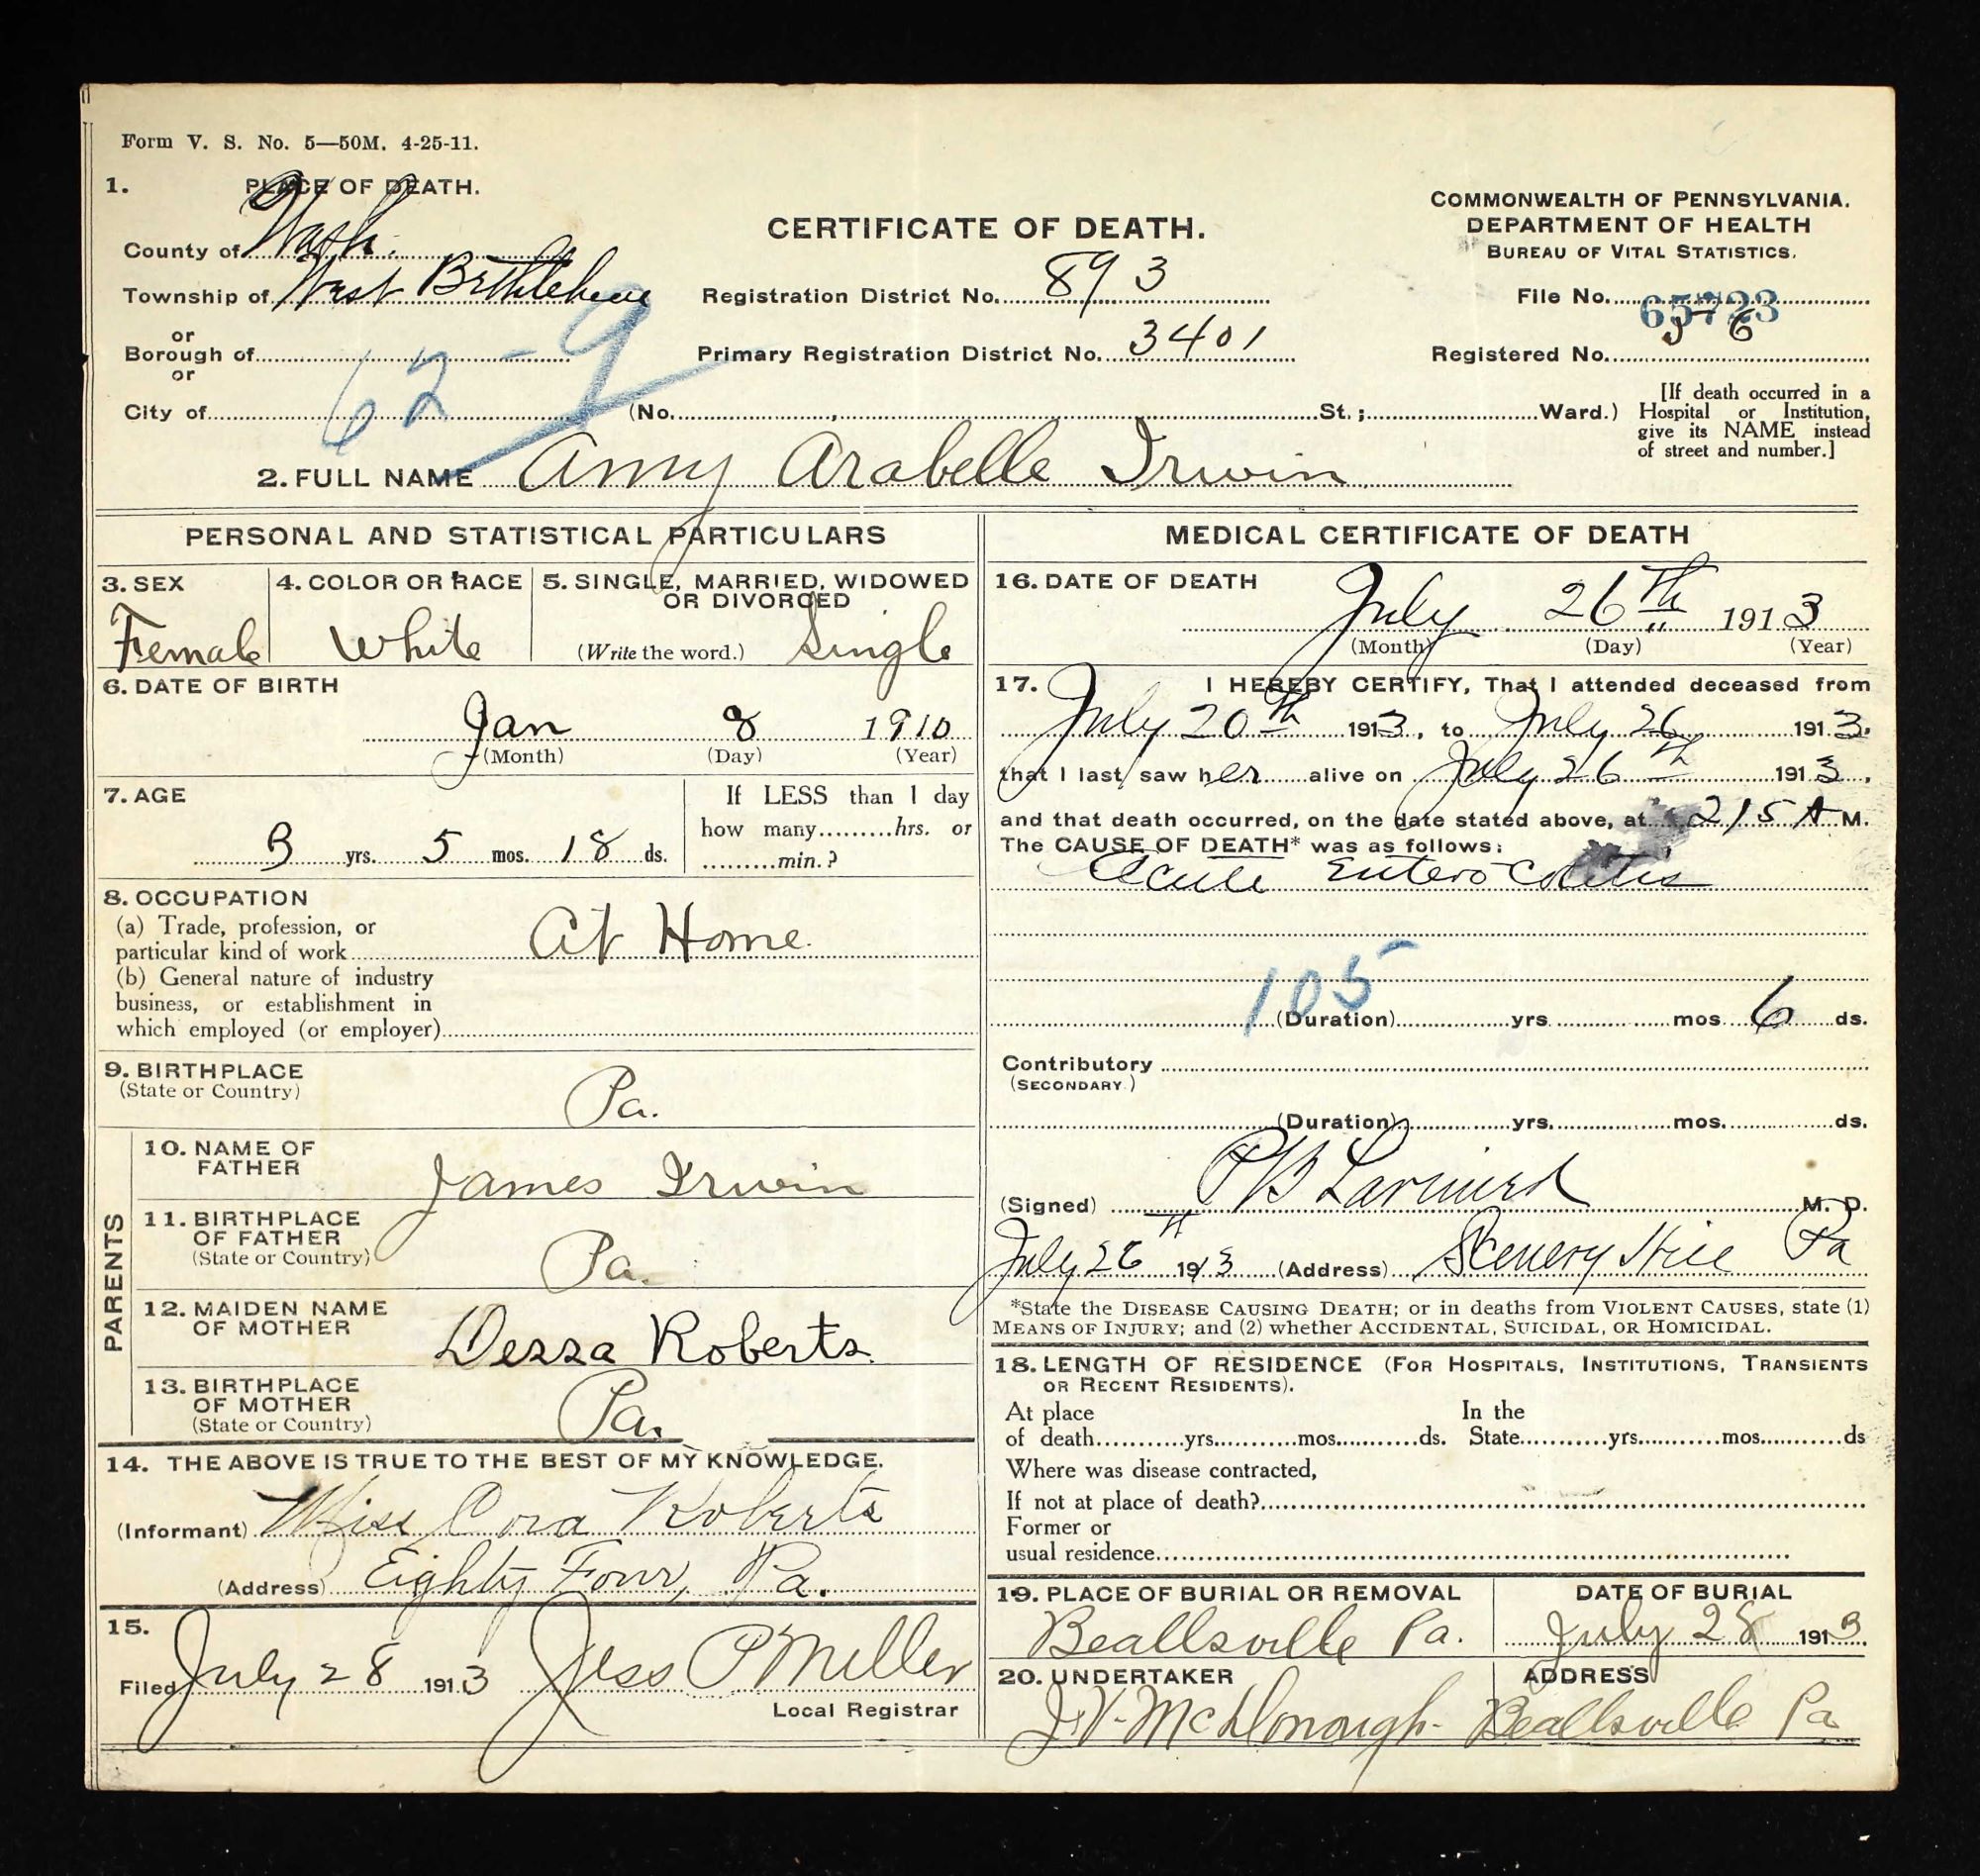 Form V. S. No. 5—50M. 4-25-11.
1. PLACE OF DEATH.
County of Wash.
Township of West Bethlehem
or
Borough of
or
City of
62-9
CERTIFICATE OF DEATH.
Registration District No. 893
Primary Registration District No. 3401
(No. , St.; Ward.)
COMMONWEALTH OF PENNSYLVANIA.
DEPARTMENT OF HEALTH
BUREAU OF VITAL STATISTICS.
File No. 65723
Registered No. 56
[If death occurred in a
Hospital or Institution,
give its NAME instead
of street and number.]
2. FULL NAME Amy Arabelle Irwin
PERSONAL AND STATISTICAL PARTICULARS
3. SEX
Female
4. COLOR OR RACE
White
5. SINGLE, MARRIED, WIDOWED
OR DIVORCED
(Write the word.) Single
6. DATE OF BIRTH
Jan 8 1910
(Month) (Day) (Year)
7. AGE
3 yrs. 5 mos. 18 ds.
If LESS than 1 day
how many hrs. or
min.?
8. OCCUPATION
(a) Trade, profession, or
particular kind of work At Home.
(b) General nature of industry
business, or establishment in
which employed (or employer)
9. BIRTHPLACE
(State or Country)
Pa.
PARENTS
10. NAME OF
FATHER
James Irwin
11. BIRTHPLACE
OF FATHER
(State or Country)
Pa.
12. MAIDEN NAME
OF MOTHER
Dessa Roberts
13. BIRTHPLACE
OF MOTHER
(State or Country)
Pa.
14. THE ABOVE IS TRUE TO THE BEST OF MY KNOWLEDGE.
(Informant) Miss Cora Roberts
(Address) Eighty Four, Pa.
15.
Filed July 28 1913 Jess P Miller
Local Registrar
MEDICAL CERTIFICATE OF DEATH
16. DATE OF DEATH
July 26th 1913
(Month) (Day) (Year)
17. I HEREBY CERTIFY, That I attended deceased from
July 20th 1913, to July 26 1913.
that I last saw her alive on July 26th 1913.
and that death occurred, on the date stated above, at 215 A M.
The CAUSE OF DEATH* was as follows:
Acute Entero Colitis
105
(Duration) yrs mos 6 ds.
Contributory
(SECONDARY.)
(Duration) yrs. mos. ds.
(Signed) M. D.
July 26th 1913 (Address) Scenery Hill Pa
*State the DISEASE CAUSING DEATH; or in deaths from VIOLENT CAUSES, state (1)
MEANS OF INJURY; and (2) whether ACCIDENTAL, SUICIDAL, OR HOMICIDAL.
18. LENGTH OF RESIDENCE (FOR HOSPITALS, INSTITUTIONS, TRANSIENTS
OR RECENT RESIDENTS).
At place In the
of death yrs. mos. ds. State yrs. mos. ds
Where was disease contracted,
If not at place of death?
Former or
usual residence
19. PLACE OF BURIAL OR REMOVAL
Beallsville Pa.
DATE OF BURIAL
July 28 1913.
20. UNDERTAKER
J.V. McDonough-
ADDRESS
Beallsville Pa